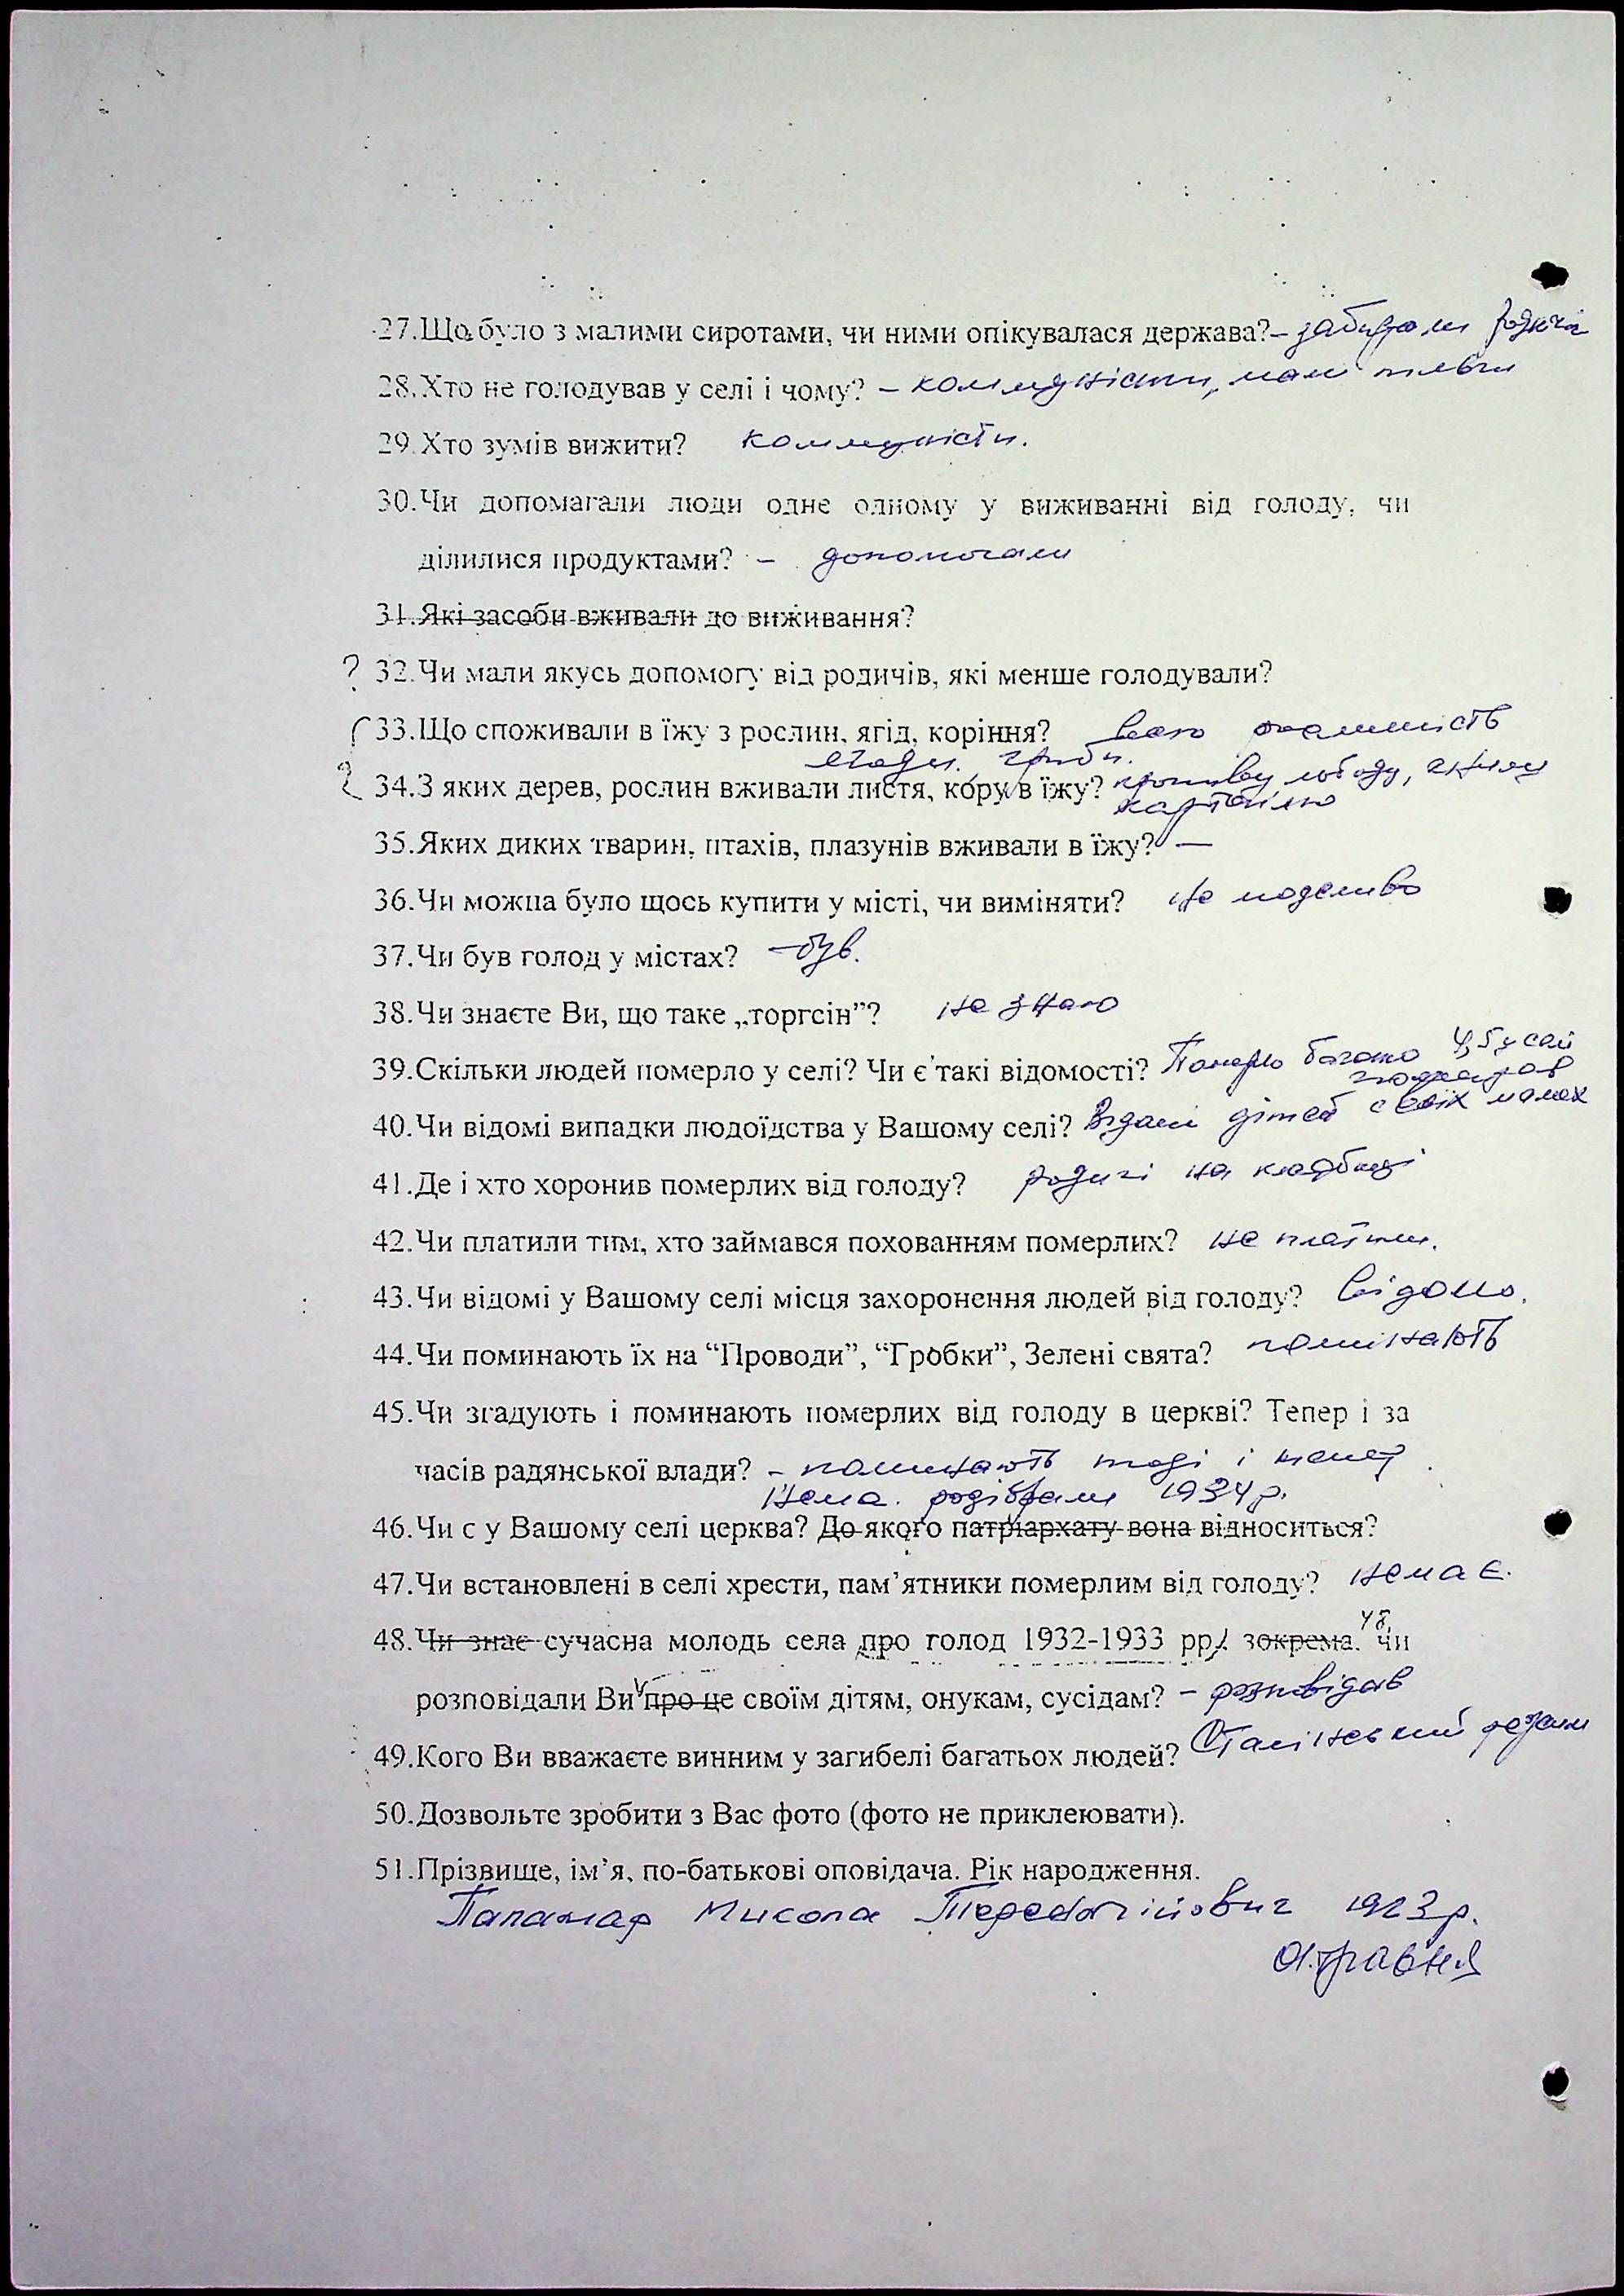 27.Що було з малими сиротами, чи ними опікувалася держава?– забирали родичі
28.Хто не голодував у селі і чому? – коммуністи, мали пільги
29.Хто зумів вижити? коммуністи.
30.Чи допомагали люди одне одному у виживанні від голоду, чи
ділилися продуктами? – допомогали
31.Які засоби вживали до виживання?
? 32.Чи мали якусь допомогу від родичів, які менше голодували?
33.Що споживали в їжу з рослин, ягід, коріння? всю рослинність
ягоди. гриби.
34.З яких дерев, рослин вживали листя, кору в їжу? кропиву, лободу, гнилу
картоплю
35.Яких диких тварин, птахів, плазунів вживали в їжу? —
36.Чи можна було щось купити у місті, чи виміняти? Не можливо
37.Чи був голод у містах? – був.
38.Чи знаєте Ви, що таке „торгсін”? не знаю
39.Скільки людей померло у селі? Чи є такі відомості? Померло багато
40.Чи відомі випадки людоїдства у Вашому селі? дітей своїх малих
41.Де і хто хоронив померлих від голоду? родичі на кладбищі
42.Чи платили тим, хто займався похованням померлих? не платили.
43.Чи відомі у Вашому селі місця захоронення людей від голоду? Відомо.
44.Чи поминають їх на “Проводи”, “Гробки”, Зелені свята? помінають
45.Чи згадують і поминають померлих від голоду в церкві? Тепер і за
часів радянської влади? – поминають тоді і тепер
Нема. розібрали 1934 р.
46.Чи є у Вашому селі церква? До якого патріархату вона відноситься?
47.Чи встановлені в селі хрести, пам’ятники померлим від голоду? немає.
48.Чи знає сучасна молодь села про голод 1932-1933 рр. зокрема. чи
розповідали Ви про це своїм дітям, онукам, сусідам? – розповідав
49.Кого Ви вважаєте винним у загибелі багатьох людей? Сталінський режим
50.Дозвольте зробити з Вас фото (фото не приклеювати).
51.Прізвище, ім’я, по-батькові оповідача. Рік народження.
Паламар Микола 1923 р.
01.травня